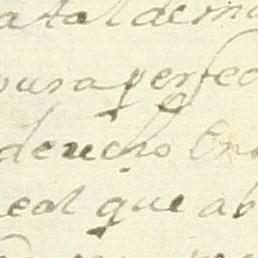 atal de mi
pura perfec
derecho En
eal que ab